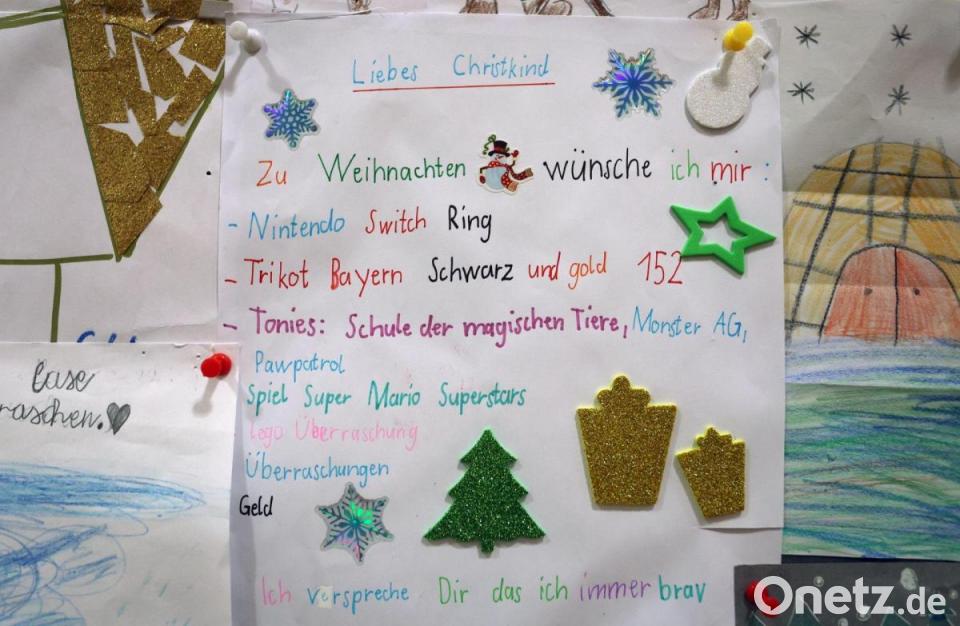 Liebes Christkind
Zu Weihnachten wünsche ich mir :
- Nintendo Switch Ring
- Trikot Bayern Schwarz und gold 152
- Tonies: Schule der magischen Tiere, Monster AG,
Pawpatrol
Spiel Super Mario Superstars
Lego Überraschung
Überraschungen
Geld
Ich verspreche Dir das ich immer brav
lase
raschen.
Onetz.de